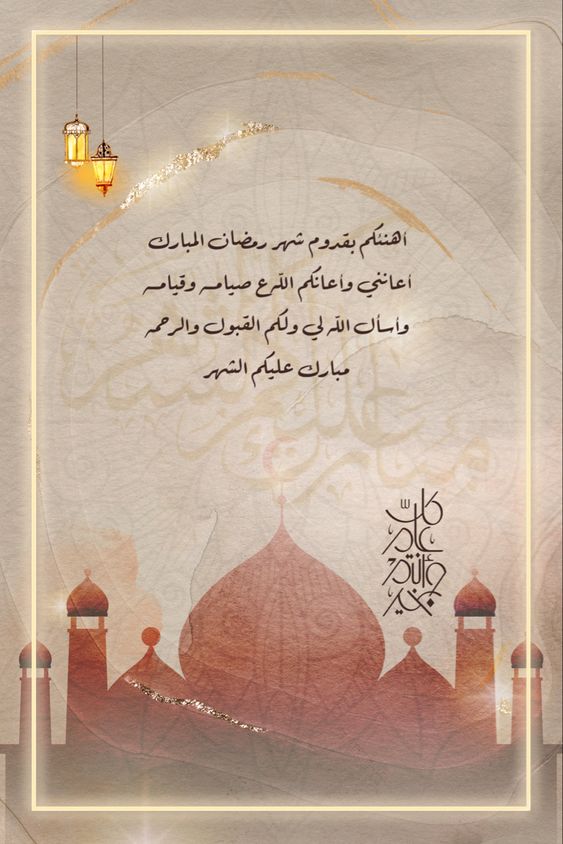 أهنئكم بقدوم شهر رمضان المبارك
أعانني وأعانكم الله ع صيامه وقيامه
وأسأل الله لي ولكم القبول والرحمه
مبارك عليكم الشهر
مبارك عليكم الشهر
كل
عام
وأنتم
بخير